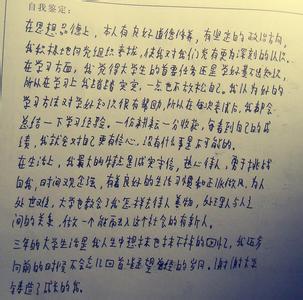 自我鉴定:
在思想品德上,本人有良好道德修养,有坚定的政治方向,
我积极地向党组织靠拢,使我对我们党有更为深刻的认识。
在学习方面,我觉得大学生的首要任务还是学好专业知识,
所以在学习上我踏踏实实,一点也不放松。我认为好的
学习方法对学好知识很有帮助,所以在每次考试后,我都会
总结一下学习经验。一份耕耘一分收获,每看到自己的成
绩,我就会对自己更有信心,没有什么事是不可能的。
在生活上,我最大的特点是诚实守信,热心待人,勇于挑战
自我,时间观念强,有着良好的生活习惯和正派作风。为人
处世,大学也教会了我怎样去待人接物,处理人与人之
间的关系,做一个能融入这个社会的有新人。
三年的大学生活是我人生中想抹也抹不掉的回忆,我在方
向前的时候不会忘了回首凝望曾经的岁月。谢谢大学
与造了成长的我。